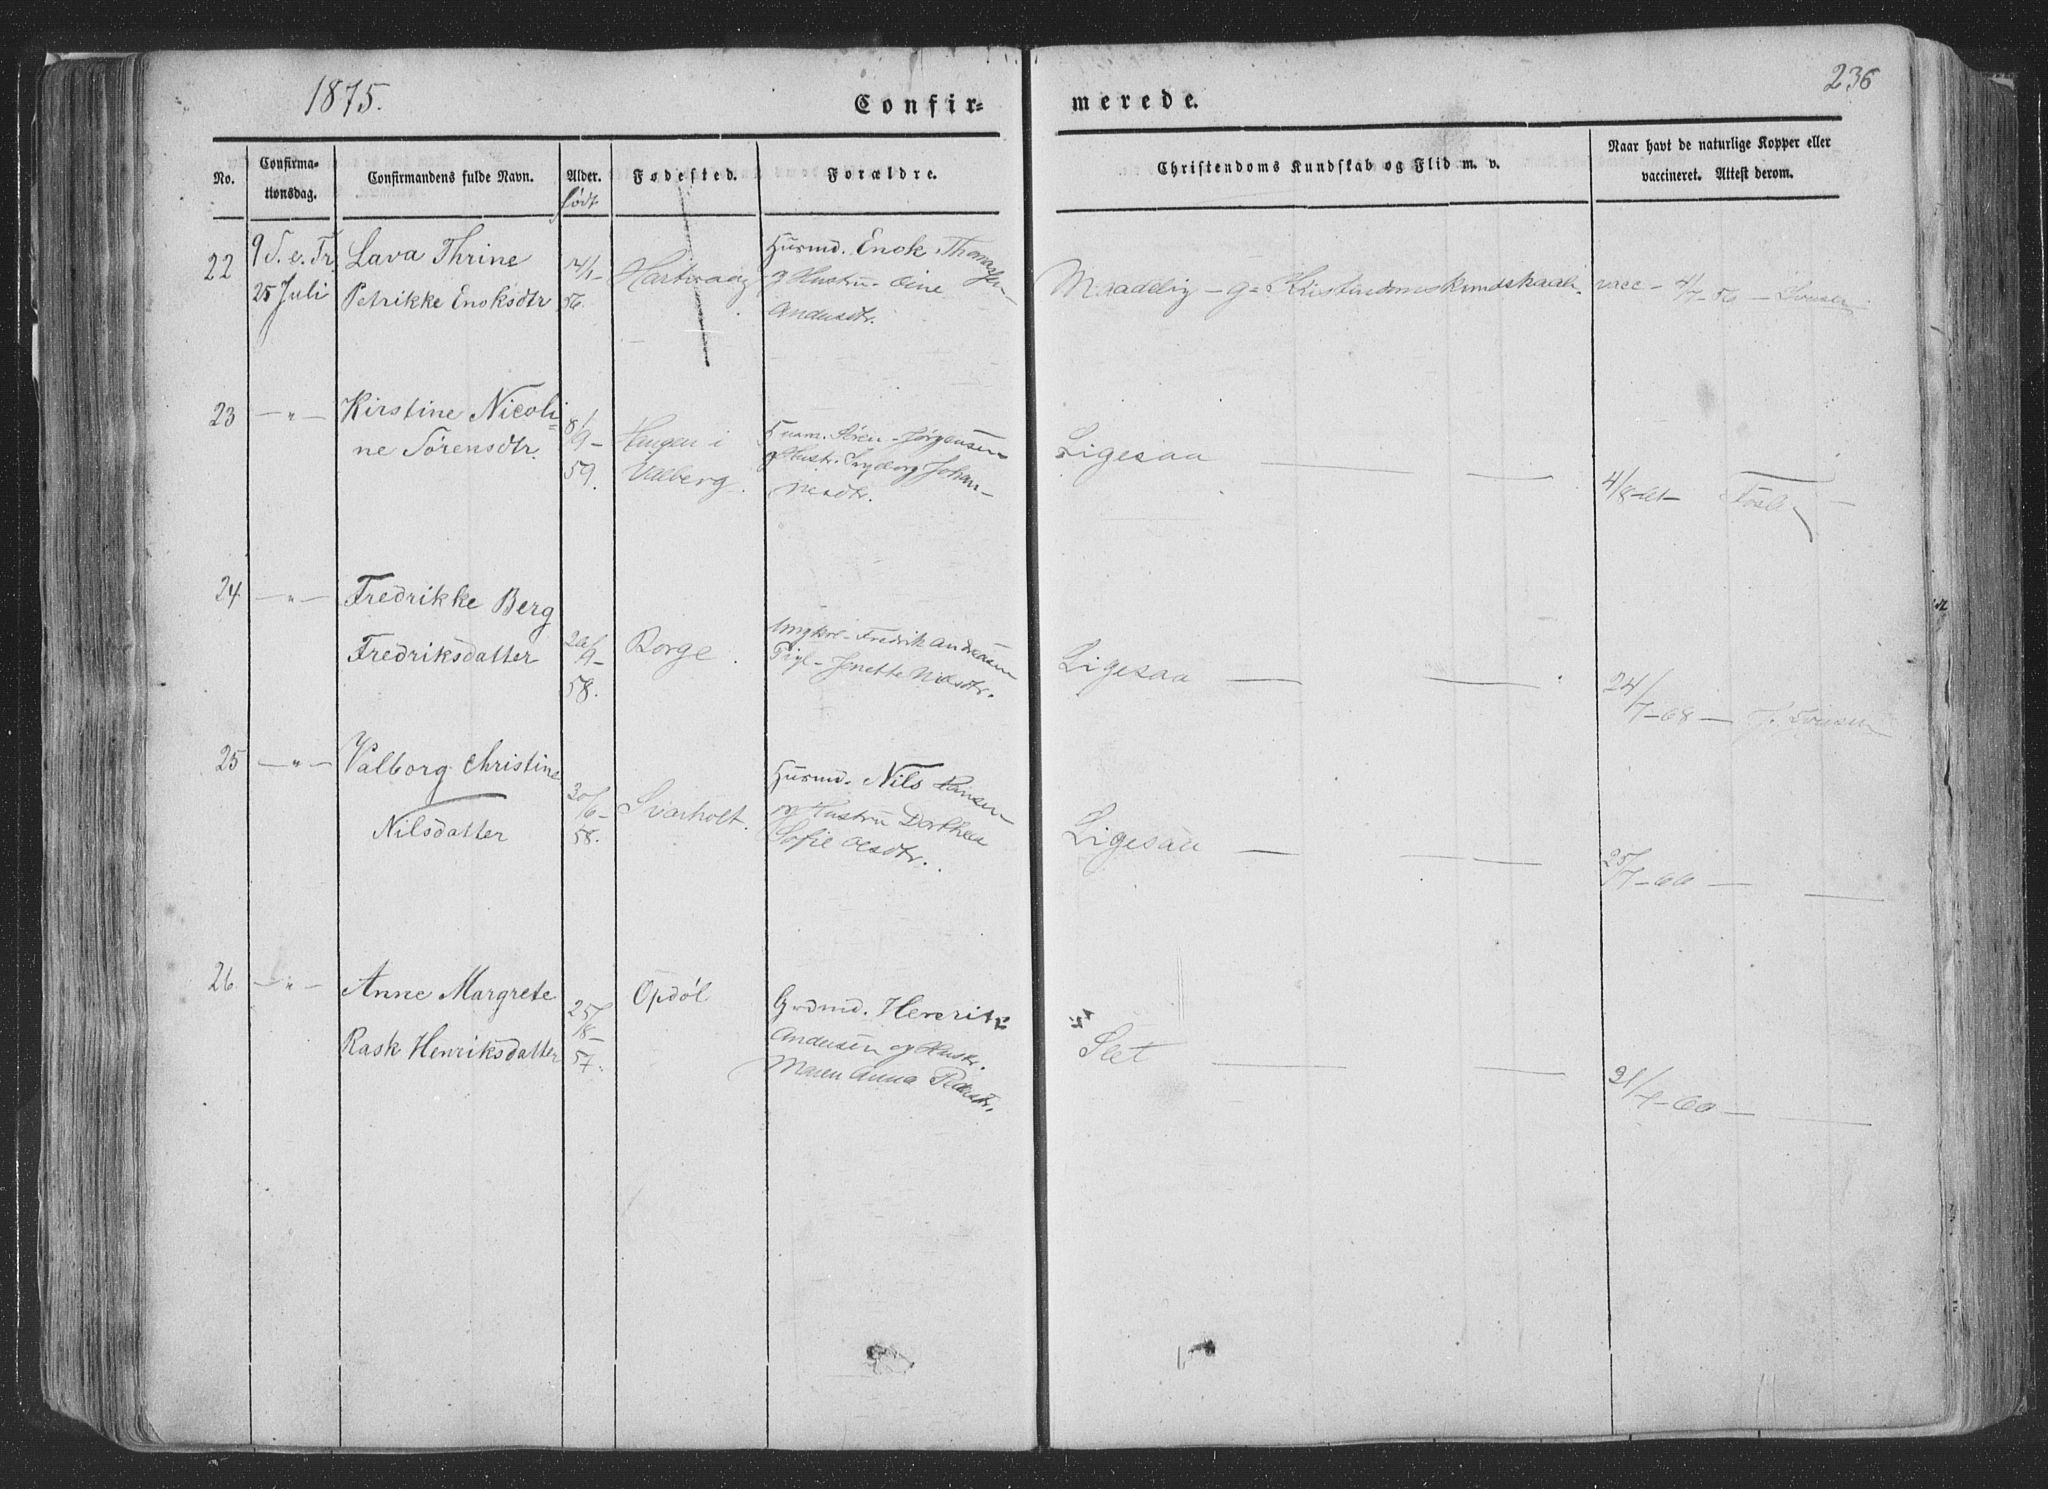 1875.
236
Confir=
merede.
No.
Confirma-
tionsdag.
Confirmandens fulde Navn.
Alder.
født
Fødested.
Forældre.
Christendoms Kundskab og Flid m. v.
Naar havt de naturlige Kopper eller
vaccineret. Attest derom.
22
9 S. e. Tr.
25 Juli
Lava Thrine
Petrikke Enoksdtr
56.
Husmd. Enok Thomassen
og Hustru
Andersdtr.
Maadelig
vacc - 4/7-56
23
— " —
Kirstine Nicoli=
ne Sørensdtr.
8/9-
59.
Haugen i
Valberg.
Søren Jørgensen
Hustr. Ingeborg Johan-
nesdtr.
Ligesaa
4/8-61-
24
— " —
Fredrikke Berg
Fredriksdatter
58.
Borge.
Ungkrl. Fredrik Andreasen
Jenette Nilsdtr.
Ligesaa
24/7-68
25
— " —
Valborg Christine
Nilsdatter
30/6-
58.
Svarholt.
Husmd. Nils Hansen
og Hustru Dorthea
Sofie Olsdtr.
Ligesaa
25/7-66 —
26
— " —
Anne Margrete
Rask Henriksdatter
25/8-
57.
Opdøl
Grdmd. Henrik
Andersen og Hustr.
Maren Anna Pedersdtr.
Slet